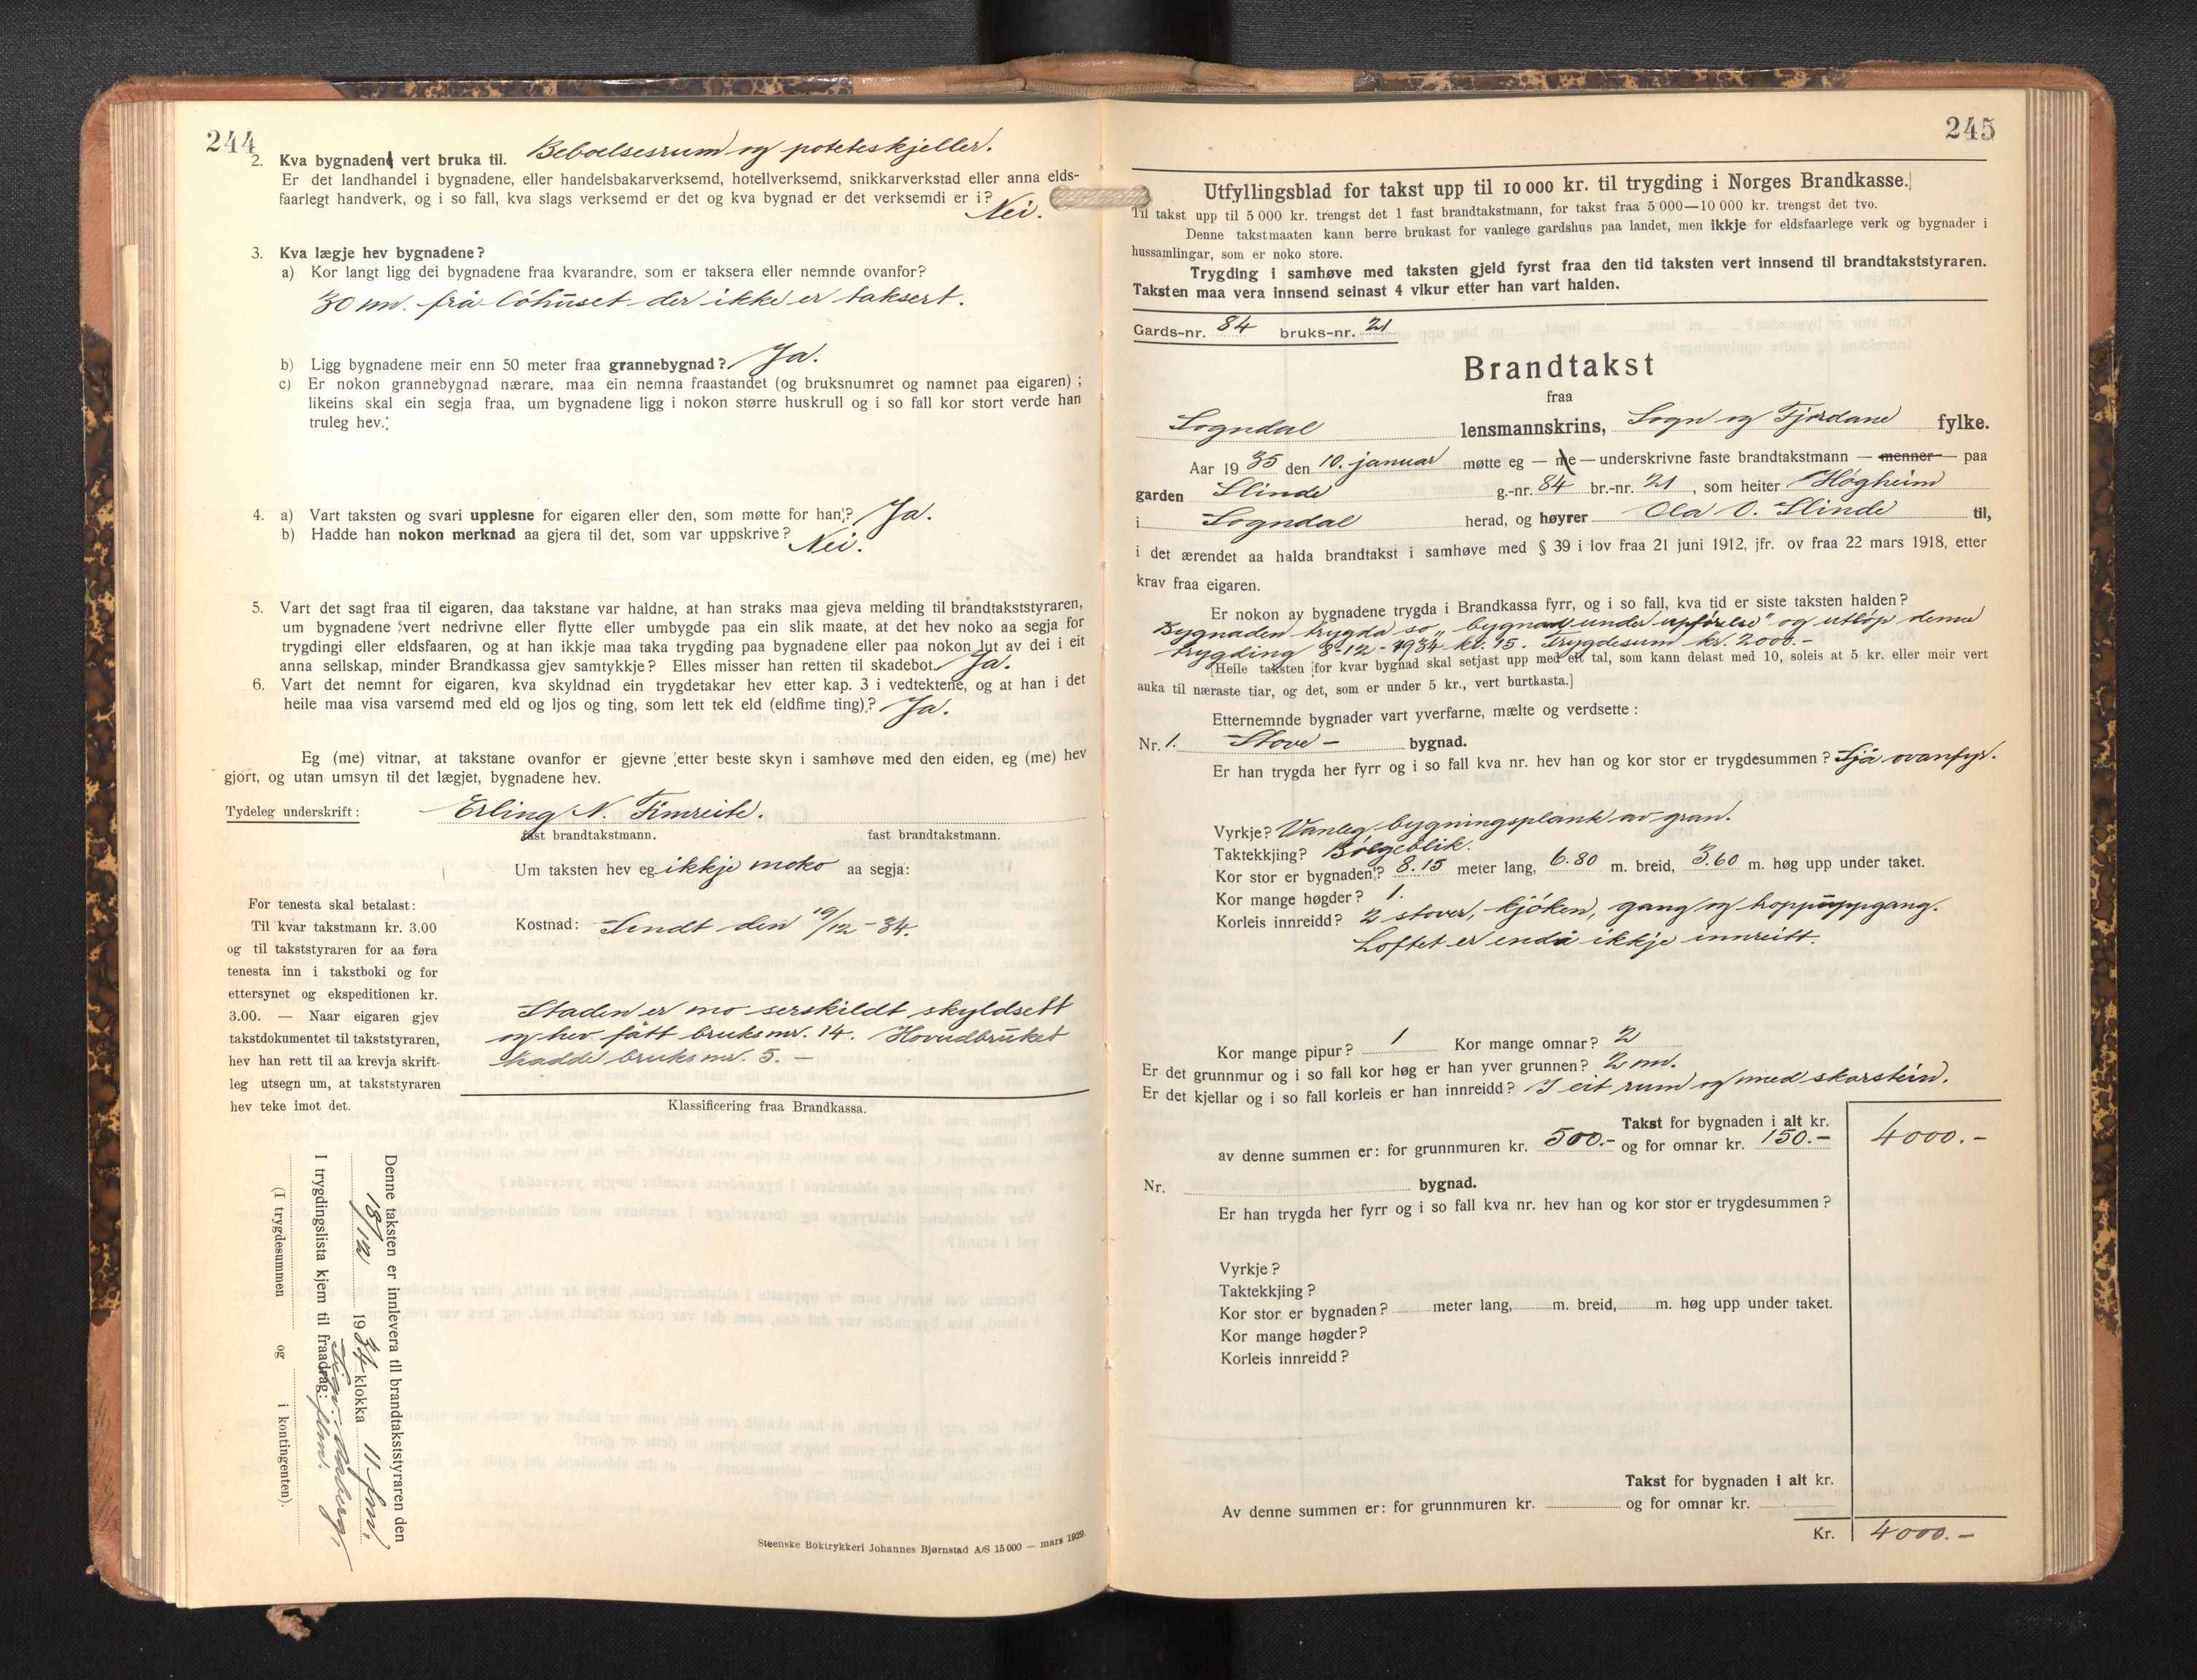 244
2. Kva bygnaden vert bruka til. Beboelsesrum og poteteskjeller.
Er det landhandel i bygnadene, eller handelsbakarverksemd, hotellverksemd, snikkarverkstad eller anna elds-
faarlegt handverk, og i so fall, kva slags verksemd er det og kva bygnad er det verksemdi er i? Nei.
3. Kva lægje hev bygnadene?
a) Kor langt ligg dei bygnadene fraa kvarandre, som er taksera eller nemnde ovanfor?
30 m. frå löhuset der ikke er taksert.
b) Ligg bygnadene meir enn 50 meter fraa grannebygnad? Ja.
c) Er nokon grannebygnad nærare, maa ein nemna fraastandet (og bruksnumret og namnet paa eigaren);
likeins skal ein segja fraa, um bygnadene ligg i nokon større huskrull og i so fall kor stort verde han
truleg hev.
4. a) Vart taksten og svari upplesne for eigaren eller den, som møtte for han? Ja.
b) Hadde han nokon merknad aa gjera til det, som var uppskrive? Nei.
5. Vart det sagt fraa til eigaren, daa takstane var haldne, at han straks maa gjeva melding til brandtakststyraren,
um bygnadene vert nedrivne eller flytte eller umbygde paa ein slik maate, at det hev noko aa segja for
trygdingi eller eldsfaaren, og at han ikkje maa taka trygding paa bygnadene eller paa nokon lut av dei i eit
anna sellskap, minder Brandkassa gjev samtykkje? Elles misser han retten til skadebot. Ja.
6. Vart det nemnt for eigaren, kva skyldnad ein trygdetakar hev etter kap. 3 i vedtektene, og at han i det
heile maa visa varsemd med eld og ljos og ting, som lett tek eld (eldfime ting)? Ja.
Eg (me) vitnar, at takstane ovanfor er gjevne etter beste skyn i samhøve med den eiden, eg (me) hev
gjort, og utan umsyn til det lægjet, bygnadene hev.
Tydeleg underskrift: Erling N. Fimreite.
fast brandtakstmann. fast brandtakstmann.
Um taksten hev eg ikkje noko aa segja:
Kostnad: Sendt den 19/12 - 34.
For tenesta skal betalast:
Til kvar takstmann kr. 3.00
og til takststyraren for aa føra
tenesta inn i takstboki og for
ettersynet og ekspeditionen kr.
3.00. — Naar eigaren gjev
takstdokumentet til takststyraren,
hev han rett til aa krevja skrift-
leg utsegn um, at takststyraren
hev teke imot det.
Staden er no serskildt skyldsett
og hev fått bruksnr. 14. Hovudbruket
hadde bruksnr. 5. —
Klassificering fraa Brandkassa.
Denne taksten er innlevera til brandtakststyraren den
18/12 1934 klokka 11 fm.
I trygdingslista kjem til fraadrag:
(I trygdesummen og i kontingenten).
Steenske Boktrykkeri Johannes Bjørnstad A/S 15 000 — mars 1929.
245
Utfyllingsblad for takst upp til 10 000 kr. til trygding i Norges Brandkasse.
Til takst upp til 5 000 kr. trengst det 1 fast brandtakstmann, for takst fraa 5 000—10 000 kr. trengst det tvo.
Denne takstmaaten kann berre brukast for vanlege gardshus paa landet, men ikkje for eldsfaarlege verk og bygnader i
hussamlingar, som er noko store.
Trygding i samhøve med taksten gjeld fyrst fraa den tid taksten vert innsend til brandtakststyraren.
Taksten maa vera innsend seinast 4 vikur etter han vart halden.
Gards-nr. 84 bruks-nr. 21
Brandtakst
fraa
Sogndal lensmannskrins, Sogn og Fjordane fylke.
Aar 1935 den 10. januar møtte eg — me — underskrivne faste brandtakstmann — menner — paa
garden Slinde g.-nr. 84 br.-nr. 21, som heiter Høgheim
i Sogndal herad, og høyrer Ola O. Slinde til,
i det ærendet aa halda brandtakst i samhøve med § 39 i lov fraa 21 juni 1912, jfr. ov fraa 22 mars 1918, etter
krav fraa eigaren.
Er nokon av bygnadene trygda i Brandkassa fyrr, og i so fall, kva tid er siste taksten halden?
Bygnaden trygda so „bygnad under uppförelse" og utlöp denne
trygding 8-12-1934 kl. 15. Trygdesum kr. 2000.-
[Heile taksten for kvar bygnad skal setjast upp med eit tal, som kann delast med 10, soleis at 5 kr. eller meir vert
auka til næraste tiar, og det, som er under 5 kr., vert burtkasta.]
Etternemnde bygnader vart yverfarne, mælte og verdsette:
Nr. 1. Stove - bygnad.
Er han trygda her fyrr og i so fall kva nr. hev han og kor stor er trygdesummen? Sjå ovanfyr.
Vyrkje? Vanleg bygningsplank av gran.
Taktekkjing? Bölgeblik.
Kor stor er bygnaden? 8.15 meter lang, 6.80 m. breid, 3.60 m. høg upp under taket.
Kor mange høgder? 1.
Korleis innreidd? 2 stover, kjöken, gang og troppuppgang.
Loftet er endå ikkje innreitt.
Kor mange pipur? 1 Kor mange omnar? 2
Er det grunnmur og i so fall kor høg er han yver grunnen? 2 m.
Er det kjellar og i so fall korleis er han innreidd? I eit rum og med skorstein.
Takst for bygnaden i alt kr. 4000.-
av denne summen er: for grunnmuren kr. 500.- og for omnar kr. 150.-
Nr. bygnad.
Er han trygda her fyrr og i so fall kva nr. hev han og kor stor er trygdesummen?
Vyrkje?
Taktekkjing?
Kor stor er bygnaden? meter lang, m. breid, m. høg upp under taket.
Kor mange høgder?
Korleis innreidd?
Takst for bygnaden i alt kr.
Av denne summen er: for grunnmuren kr. og for omnar kr.
Kr. 4000.-